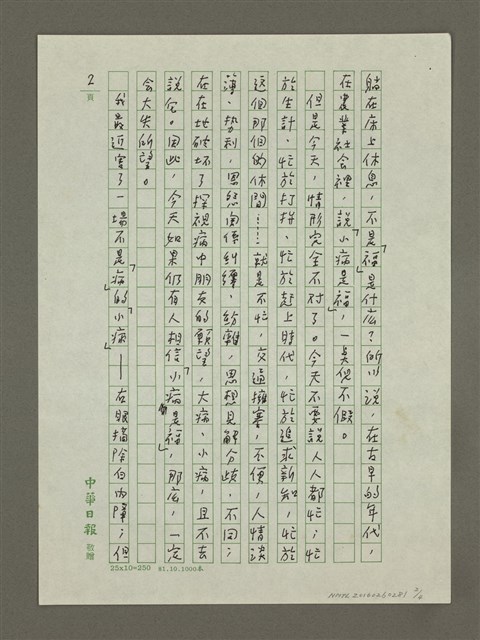 躺在床上休息，不是「福」是什么？所以說，在古早的年代，
在農業社會裡，說「小病是福」，一美倪不假。
但是今天，情形完全不对了。今天不要說人人都忙；忙
於生計、忙於打拼、忙於赶上時代，忙於追求新知，忙於
这個那個的休閒……就是不忙，交通擁塞，不便，人情淡
薄、勢利，恩怨角債糾纏、紛雜，思想見解分歧，不同；
在在地破坏了探視病中朋友的願望，大病、小病，且不去
說它。因此，今天如果仍有人相信「小病是福」，那么，一定
会大失所望。
我最近害了一場不是「病」的「小病」——右眼摘除白內障；但
2
頁
中華日報
敬贈
25x10=250 81.10.1000本